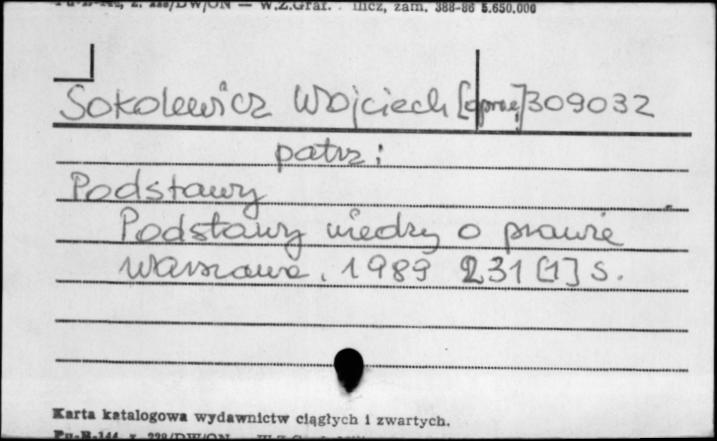 W.Z.Graf. zam. 388-86 5.650.000
Sokolewicz Wojciech [oprac] 309032
patrz:
Podstawy
Podstawy wiedzy o prawie
Warszawa, 1989 231 [1] s.
Karta katalogowa wydawnictw ciągłych i zwartych.